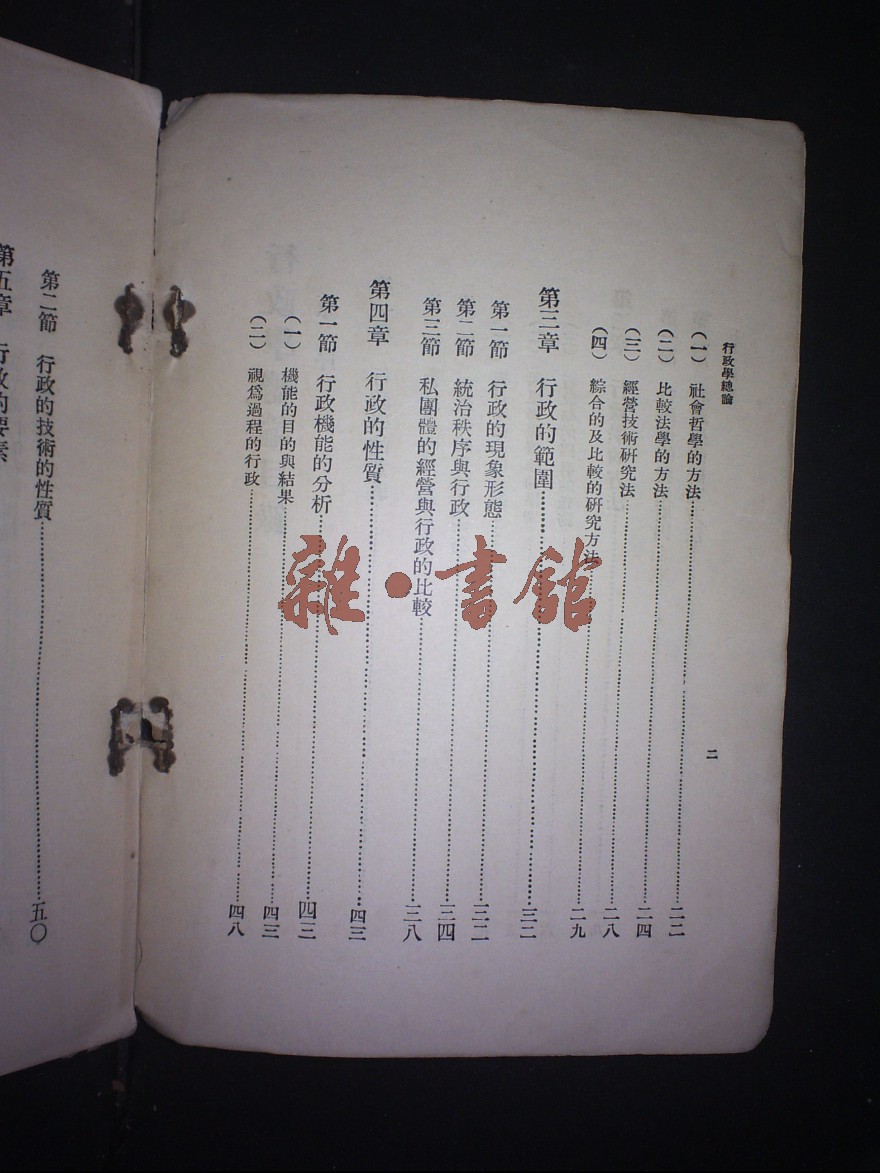 行政學總論
二
(一) 社會哲學的方法……二二
(二) 比較法學的方法……二四
(三) 經營技術硏究法……二八
(四) 綜合的及比較的硏究方法……二九
第三章 行政的範圍……三二
第一節 行政的現象形態……三二
第二節 統治秩序與行政……三四
第三節 私團體的經營與行政的比較……三八
第四章 行政的性質……四三
第一節 行政機能的分析……四三
(一) 機能的目的與結果……四三
(二) 視爲過程的行政……四八
第二節 行政的技術的性質……五〇
第五章 行政的要素
雜·書館